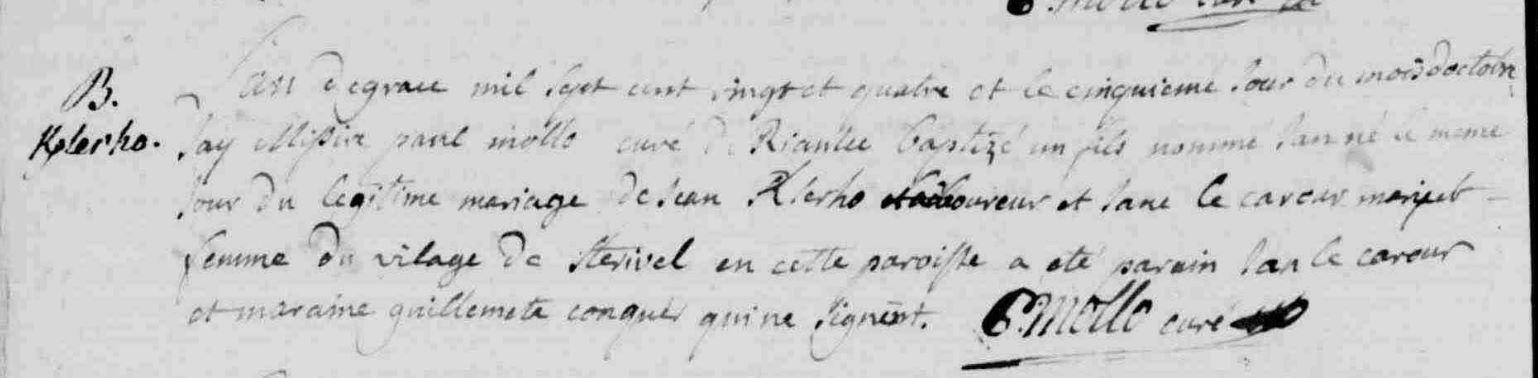 B.
Kplerho.
Lan de grace mil sept cent vingt et quatre et le cinquieme Jour du mois doctobre
Jay Missire paul mollo curé de Riantec baptizé un fils nommé Jan né le meme
Jour du legitime mariage de Jean Klerho laboureur et Jane le careur mari et
femme du vilage de Sterivel en cette paroisse a eté parain Jan le careur
et maraine guillemete conquer qui ne signent. P. Mollo curé